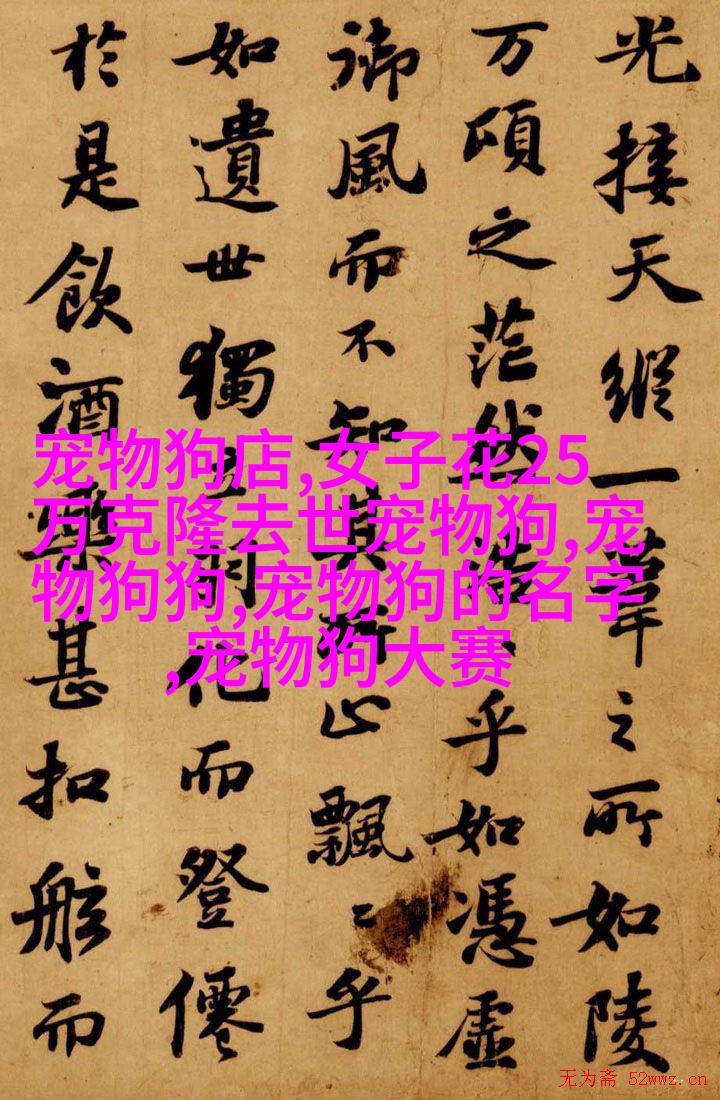 光接天縱一葦之所如陵
万頃之茫然浩〻乎如憑虛
御風而不知其所止飄〻乎
如遺世獨立羽化而登僊
於是飲酒樂甚扣舷而
宠物狗店,女子花25
万克隆去世宠物狗,宠
物狗狗,宠物狗的名字
,宠物狗大赛
无为斋 52wwz.cn